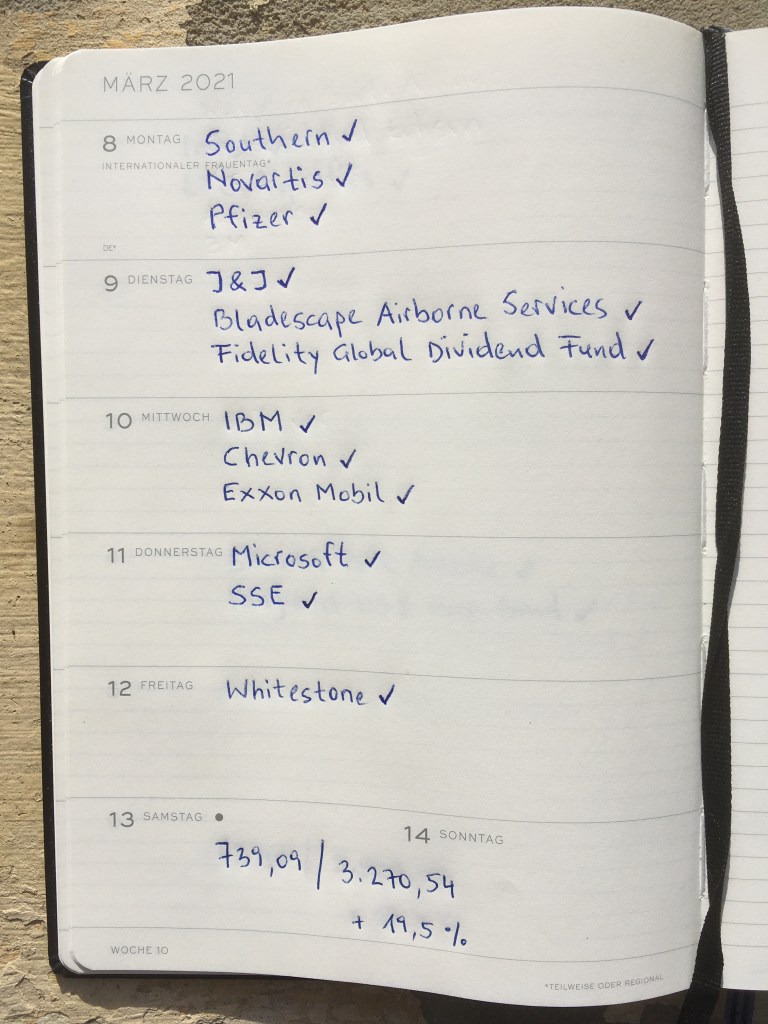 MÄRZ 2021
8 MONTAG Southern ✓
INTERNATIONALER FRAUENTAG*
Novartis ✓
Pfizer ✓
DE*
9 DIENSTAG J&J ✓
Bladescape Airborne Services ✓
Fidelity Global Dividend Fund ✓
10 MITTWOCH IBM ✓
Chevron ✓
Exxon Mobil ✓
11 DONNERSTAG Microsoft ✓
SSE ✓
12 FREITAG Whitestone ✓
13 SAMSTAG ●
14 SONNTAG
739,09 / 3.270,54
+ 19,5 %
WOCHE 10
*TEILWEISE ODER REGIONAL